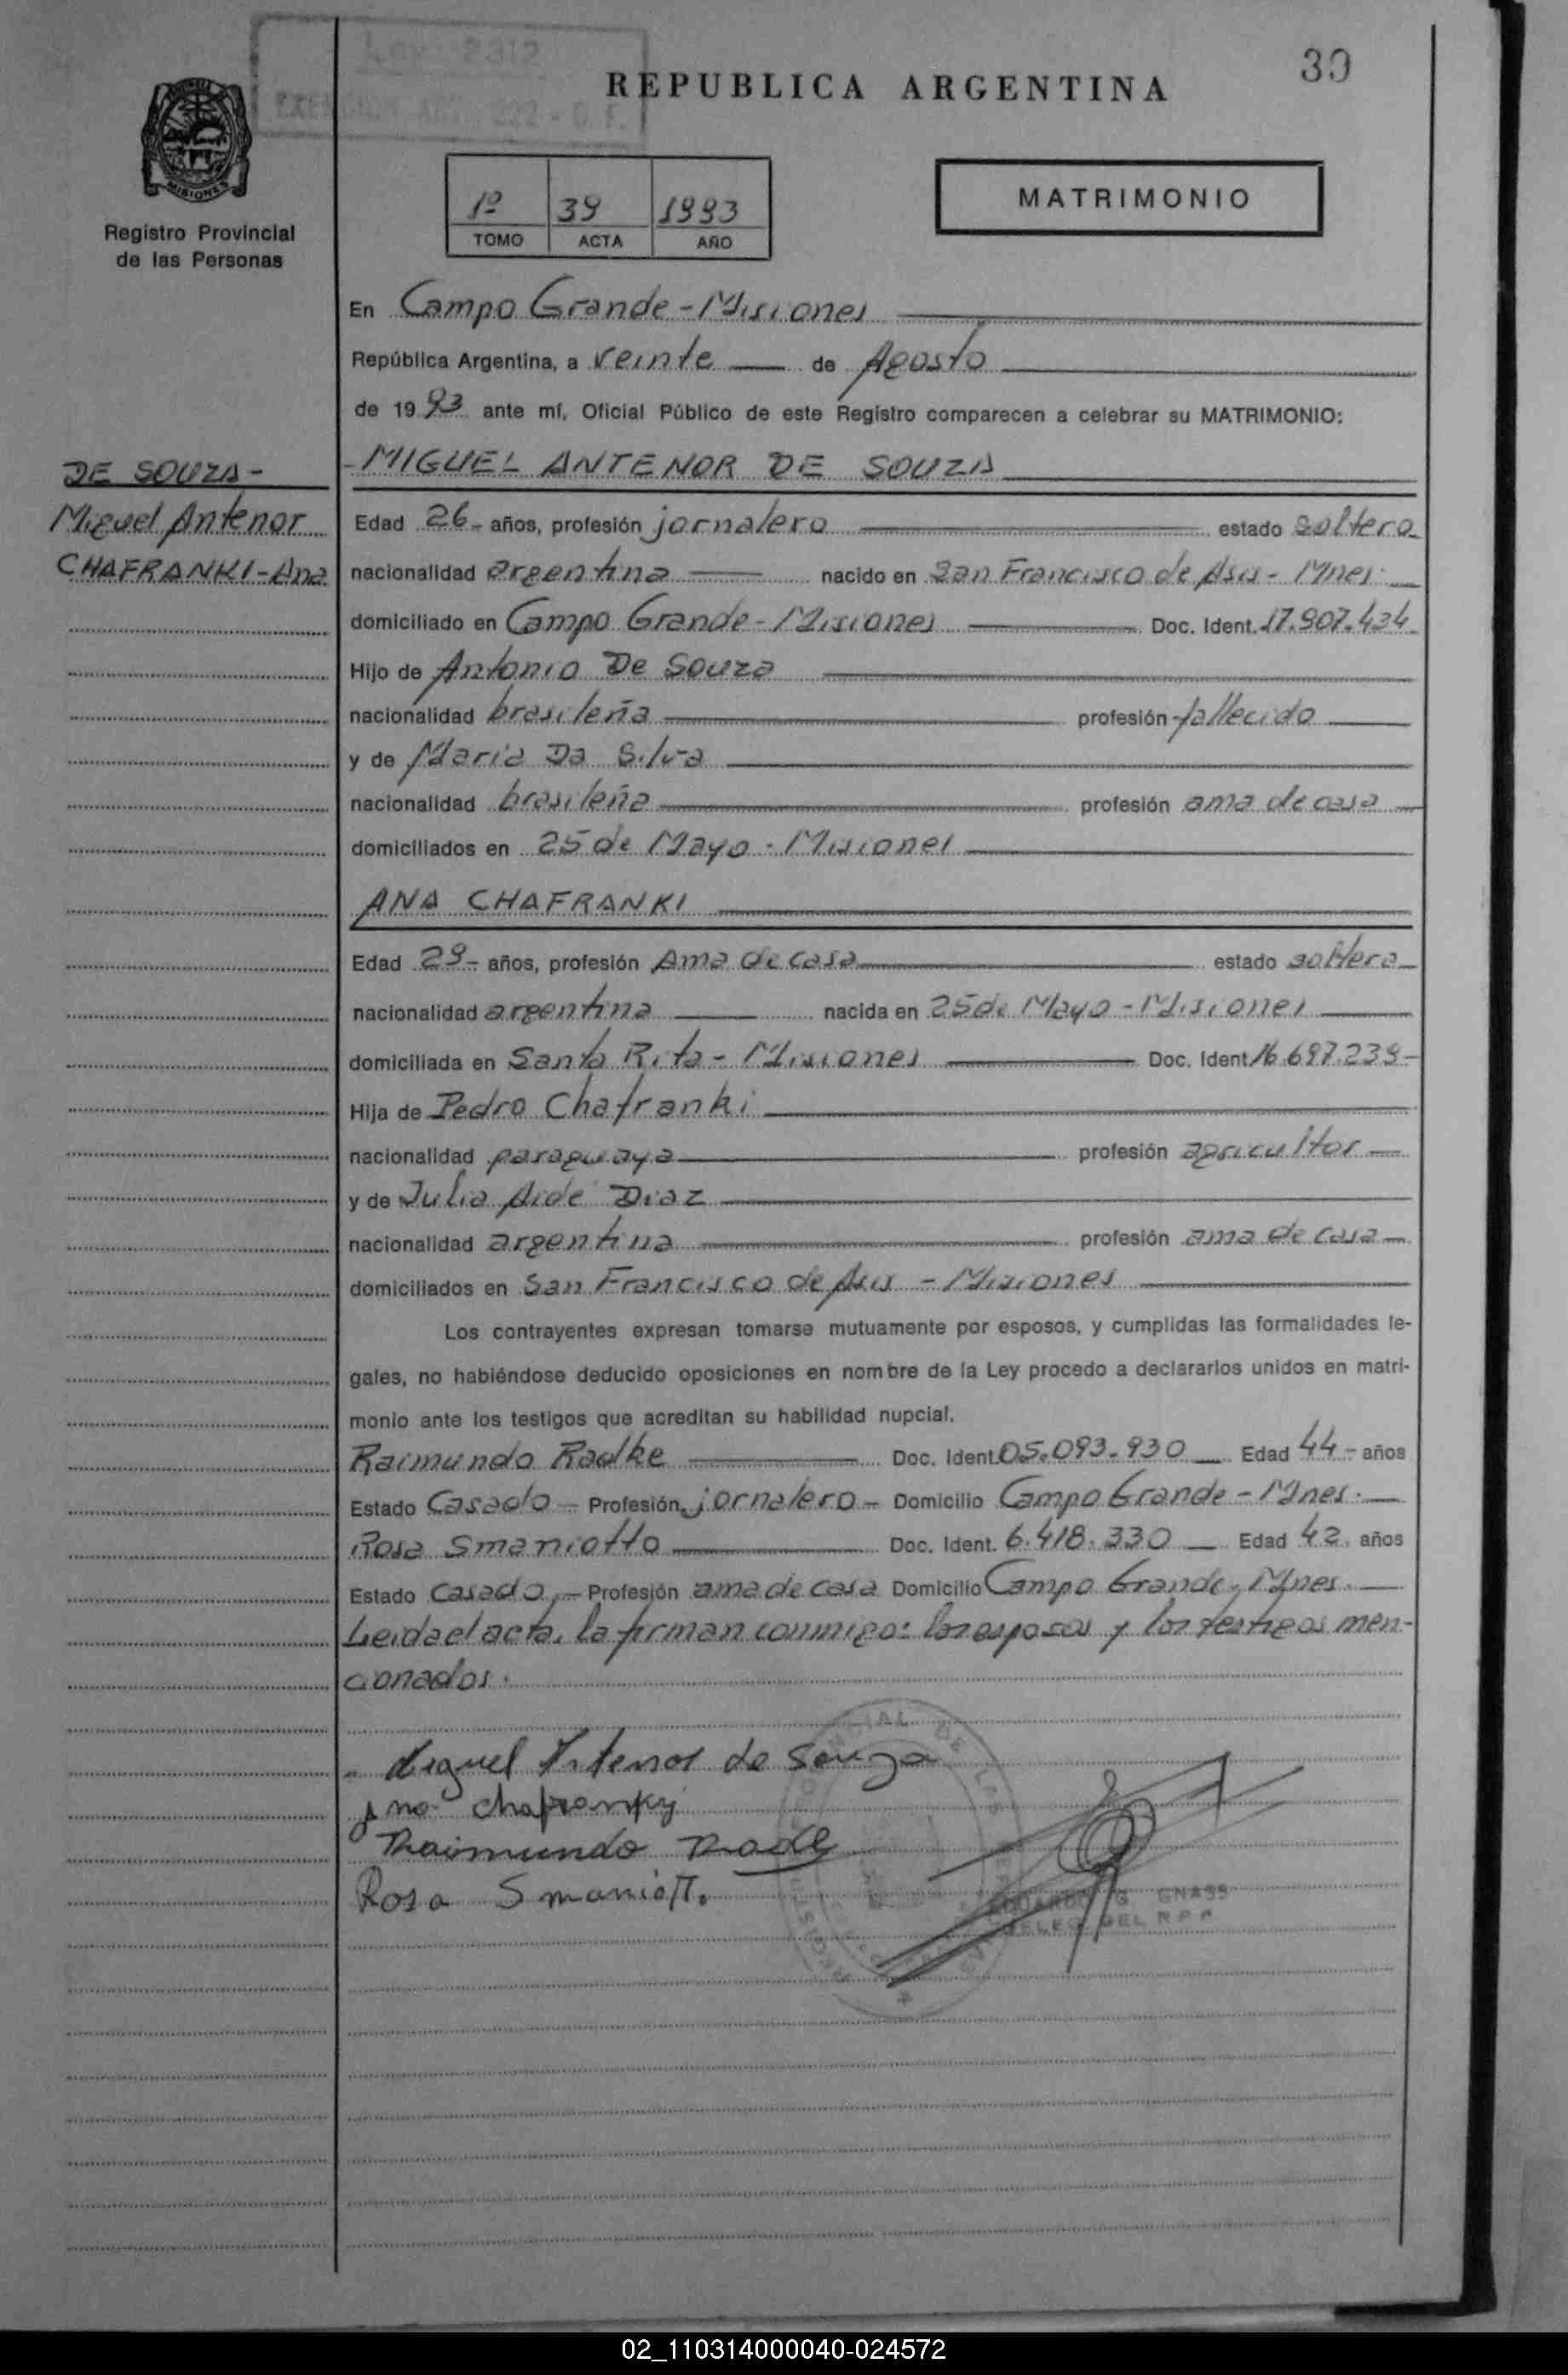 Ley 2312
EXENCION ART. 222 - C. F.
REPUBLICA ARGENTINA
39
MISIONES
Registro Provincial
de las Personas
1º 39 1993
TOMO ACTA AÑO
MATRIMONIO
En Campo Grande - Misiones
República Argentina, a veinte de Agosto
de 19 93 ante mí, Oficial Público de este Registro comparecen a celebrar su MATRIMONIO:
DE SOUZA -
Miguel Antenor
CHAFRANKI - Ana
- MIGUEL ANTENOR DE SOUZA
Edad 26 - años, profesión jornalero estado soltero
nacionalidad argentina nacido en San Francisco de Asis - Mnes.
domiciliado en Campo Grande - Misiones Doc. Ident. 17.907.434
Hijo de Antonio De Souza
nacionalidad brasileña profesión fallecido
y de Maria Da Silva
nacionalidad brasileña profesión ama de casa
domiciliados en 25 de Mayo - Misiones
ANA CHAFRANKI
Edad 29 - años, profesión Ama de casa estado soltera
nacionalidad argentina nacida en 25 de Mayo - Misiones
domiciliada en Santa Rita - Misiones Doc. Ident. 16.697.239 -
Hija de Pedro Chafranki
nacionalidad paraguaya profesión agricultor
y de Julia Aidé Diaz
nacionalidad argentina profesión ama de casa
domiciliados en San Francisco de Asis - Misiones
Los contrayentes expresan tomarse mutuamente por esposos, y cumplidas las formalidades le-
gales, no habiéndose deducido oposiciones en nombre de la Ley procedo a declararlos unidos en matri-
monio ante los testigos que acreditan su habilidad nupcial.
Raimundo Radke Doc. Ident. 05.093.930 Edad 44 - años
Estado Casado - Profesión jornalero - Domicilio Campo Grande - Mnes.
Rosa Smaniotto Doc. Ident. 6.418.330 Edad 42 años
Estado casado - Profesión ama de casa Domicilio Campo Grande - Mnes.
Leida el acta, la firman conmigo: los esposos y los testigos men-
cionados.
Miguel Antenor de Souza
Ana chafranky
Raimundo Radke
Rosa Smaniotto
EDUARDO G. GNASS
DELEG. DEL R P P
02_110314000040-024572